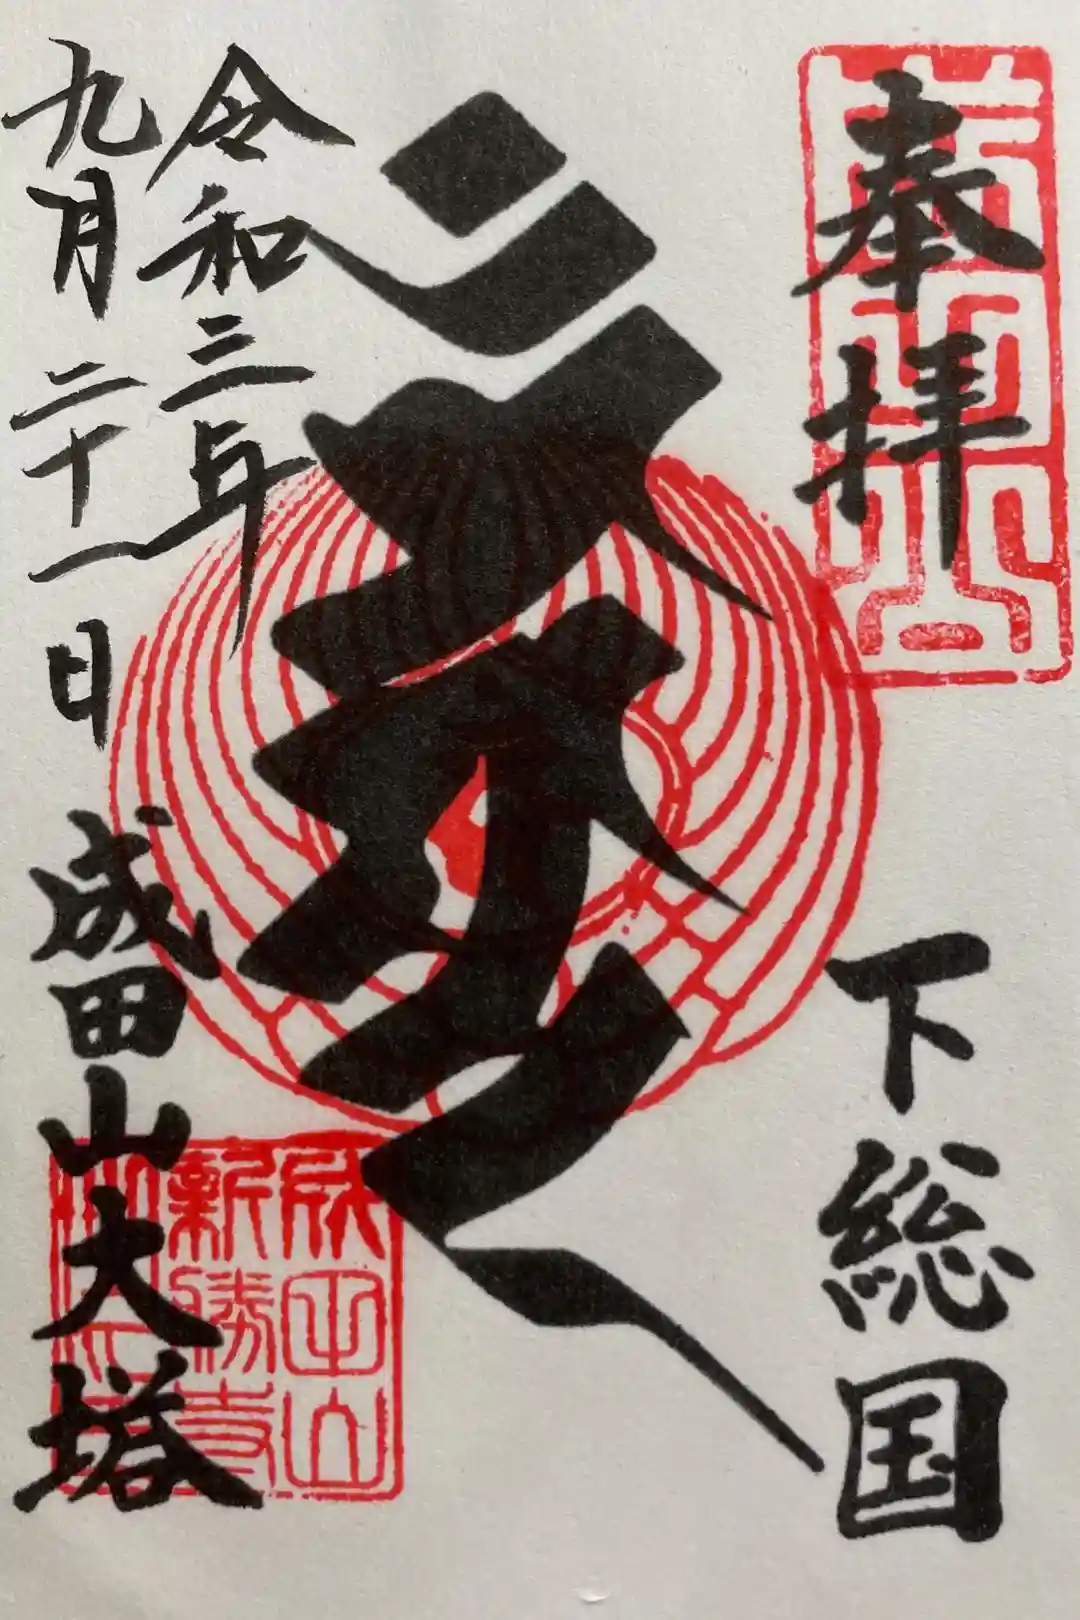 奉拝
下総国
令和三年
九月二十一日
成田山大塔
成田山
新勝寺